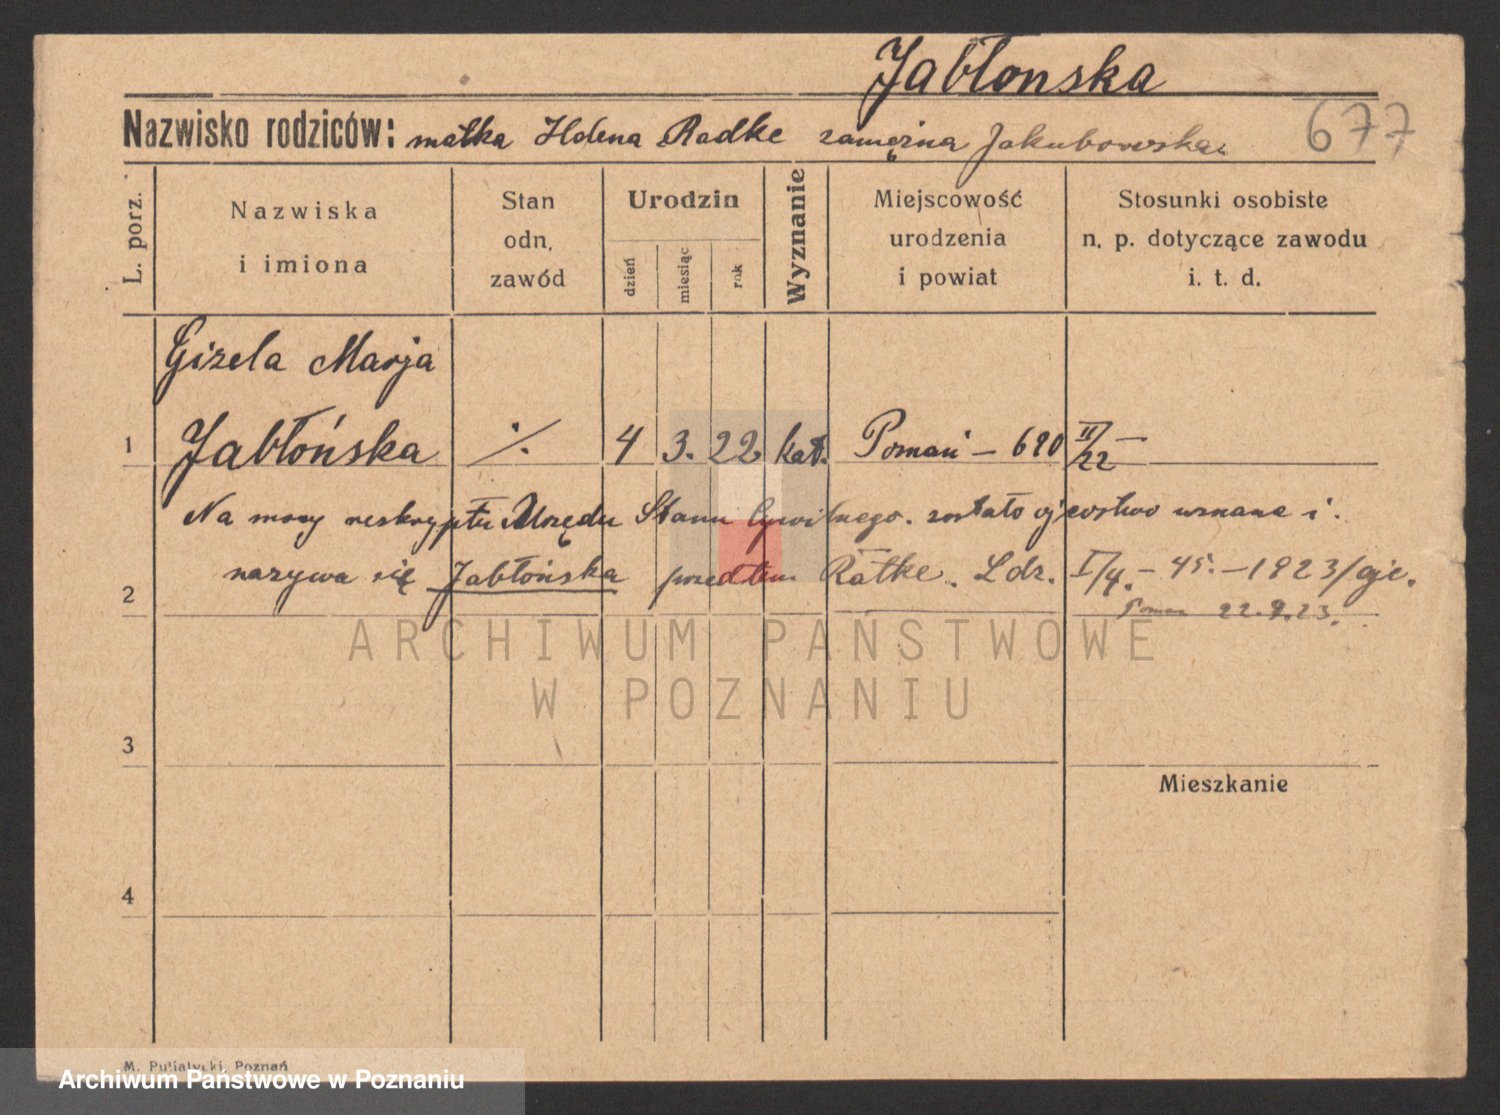 Jabłonska
Nazwisko rodziców: matka Helena Radke zamężna Jakubowska
677
L. porz.
Nazwiska
i imiona
Stan
odn,
zawód
Urodzin
dzień
miesiąc
rok
Wyznanie
Miejscowość
urodzenia
i powiat
Stosunki osobiste
n. p. dotyczące zawodu
i. t. d.
Gizela Marja
1 Jabłońska ·/. 4 3. 22 kat. Poznań - 690 II/22 -
Na mocy reskryptu Urzędu Stanu Cywilnego. zostało ojcostwo uznane i.
2 nazywa się Jabłońska przedtem Ratke. Ldz. I/4. - 45. - 1823/
22.9.23.
ARCHIWUM PAŃSTWOWE
W POZNANIU
3
Mieszkanie
4
M. Putiatycki, Poznań
Archiwum Państwowe w Poznaniu